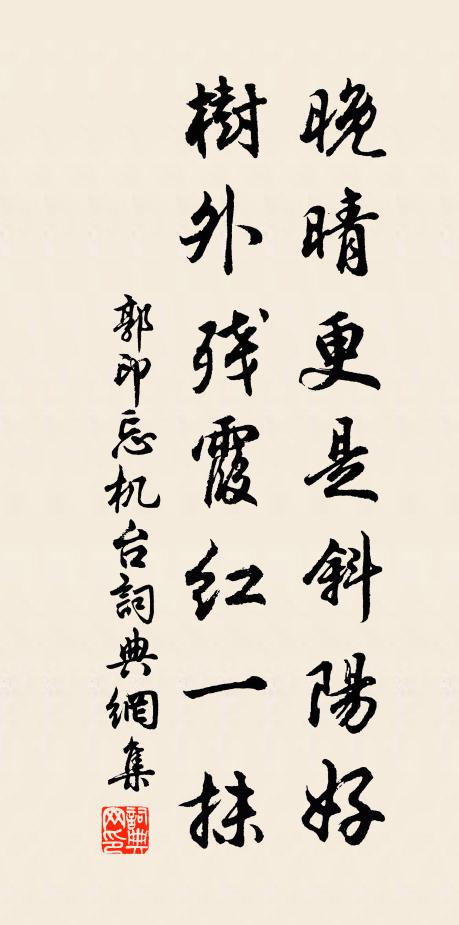 晚晴更是斜陽好
樹外残霞紅一抹
郭印忘机台詞典網集
詞典
网印